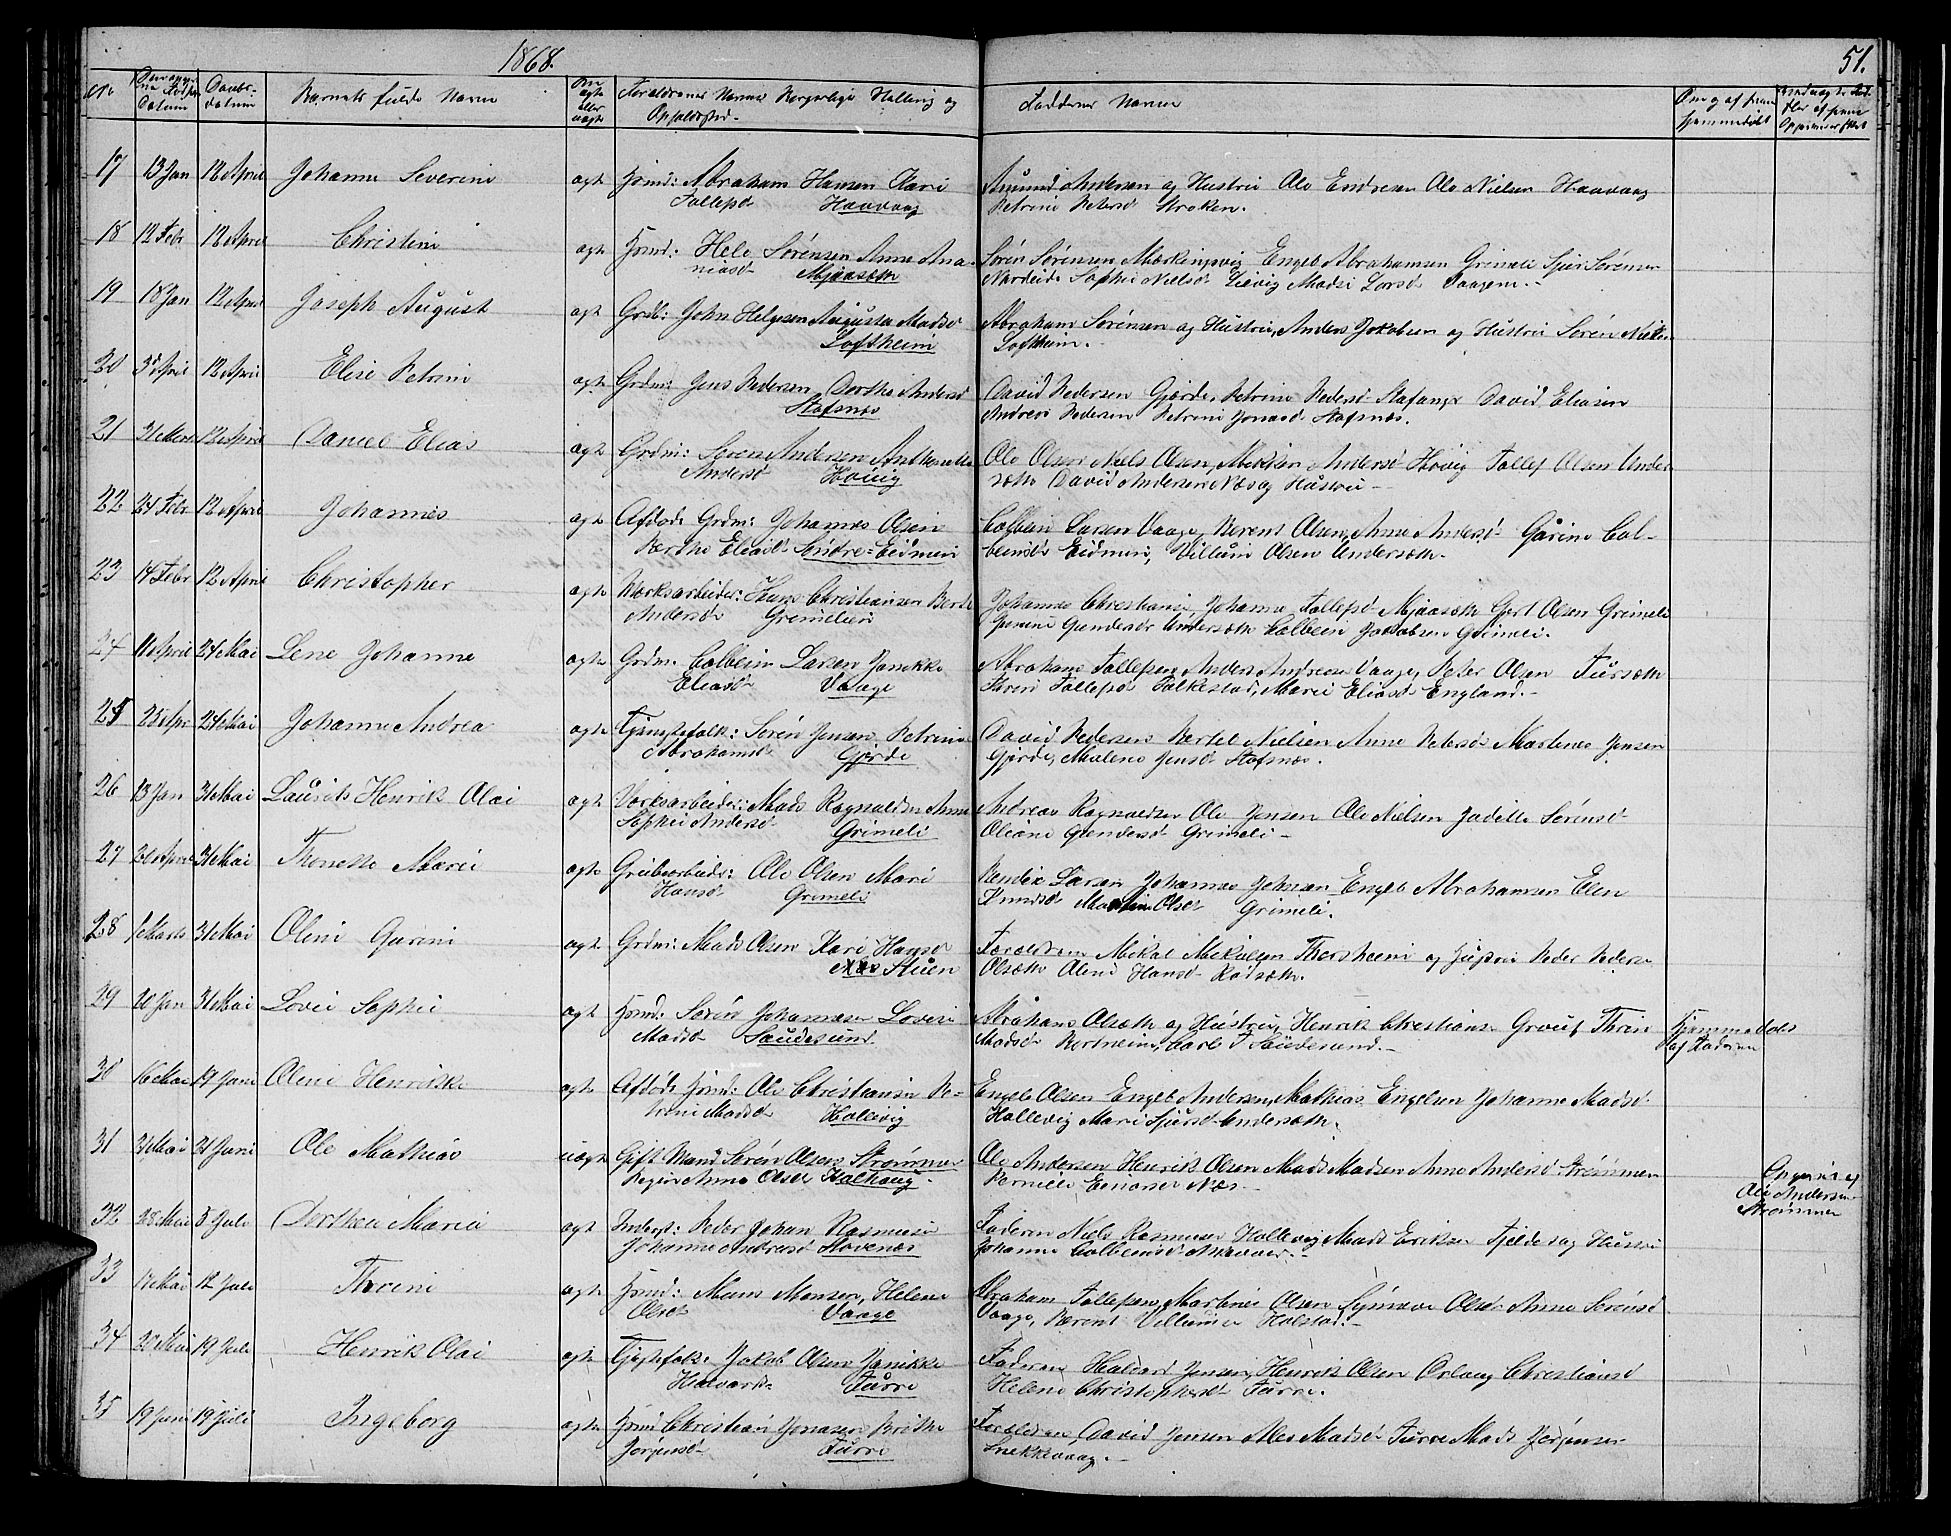 1868.
51.
No
Datum
Daabs-
datum
Barnets fulde Navn
ægte
eller
uægte
Forældrenes Navne Borgerlige Stilling og
Opholdssted.
Faddernes Navne
17 13 Jan 12 April Johanne Severine ægte Hmd: Abraham Hansen Kari
Tollefsd Haavaag
Amund Andersen og Hustru Ole Endresen Ole Nielsen Haavaag
Petrine Petersd Stroken.
18 12 Febr 12 April Christine ægte Hmd: Hele Sørensen Anne Ana-
niasd Mjaasæth
Søren Sørensen Mærkingsvig Engel Abrahamsen Grimeli Sjur Sørensen
Nordeide Sophie Nielsd Lievig Madsi Larsd Vaagene.
19 18 Jan 12 April Joseph August ægte Grdb: John Helgesen Augusta Madsd
Loftheim
Abraham Sørensen og Hustru, Anders Jakobsen og Hustru Søren Nielsen
Loftheim.
20 3 April 12 April Elise Petrine ægte Grdm: Jens Pedersen Dorthe Andersd
Stafsnæs
David Pedersen Gjørde, Petrine Pedersd Stafanger David Eliasen
Andreas Pedersen Petrine Jonasd Stafsnæs.
21 31 Marts 12 April Daniel Elias ægte Grdm: Søren Andersen Anthonette
Andersd Høvig
Ole Olsen Niels Olsen, Mikkeline Andersd Høvig Tollef Olsen Under-
sæth David Andersen Næs og Hustru
22 24 Febr 12 April Johannes ægte Afdøde Grdm: Johannes Olsen
Berthe Eliasd Søndre-Eidmeri
Colbein Larsen Vaage, Berent Olsen, Anne Andersd Gårine Col-
beinsd Eidmeri, Villum Olsen Undersæth.
23 14 Febr 12 April Christopher ægte Værksarbeider: Hans Christiansen Berte
Andersd Grimelien
Johannes Christiansen, Johanne Tollefsd Mjaasæth Gert Olsen Grimeli
Gunine Gundersd Undersæth Colbein Jakobsen Grimeli.
24 11 April 24 Mai Lene Johanne ægte Grdm: Colbein Larsen Janikke
Eliasd Vaage
Abraham Tollefsen, Anders Andresen Vaage, Peter Olsen Fursæth
Thrine Tollefsd Falkestad, Marie Eliasd England.
25 25 Apr 24 Mai Johanne Andrea ægte Tjenestefolk: Søren Jensen, Petrine
Abrahamsd Gjørde
David Pedersen Bertel Nielsen Anne Petersd Martines Jensen
Gjørde, Malene Jensd Stafsnæs.
26 13 Jan 31 Mai Laurits Henrik Olai ægte Værksarbeider: Mads Ragnaldsen Anne
Sophie Andersd Grimeli
Andreas Ragnaldsen Ole Jensen Ole Nielsen Jadelle Sørensd
Oliane Gundersd Grimeli
27 20 April 31 Mai Thonette Marie ægte Grubearbeider: Ole Olsen Mari
Hansd Grimeli
Bendix Larsen Johannes Johnsen Engel Abrahamsen Elen
Knudsd Martine Olsd Grimeli.
28 1 Marts 31 Mai Oline Gurine ægte Grdm: Mads Olsen Kari Hansd
Stuen
Forældrene Mikal Mikalsen Thorsheim og Hustru Peder Pedersen
Olsæth Oline Hansd Rødsæth.
29 20 Jan 31 Mai Lovise Sophie ægte Hmd: Søren Johannesen Lovise
Madsd Saudesund
Abraham Olsæth og Hustru, Henrik Christians Grouf Thrine
Madsd Bertheim, Carl J Saudesund.
Hjemmedøbt
af Faderen
30 16 Mai 19 Juni Oline Henrikke ægte Afdøde Hmd: Ole Christiansen Pe-
trine Madsd Hallevig
Engel Olsen Engel Andersen, Mathias Engelsen Johanne Madsd
Hallevig Mari Sjursd Undersæth.
31 31 Mai 21 Juni Ole Mathias uægte Gift Mand Søren Olsen Strømmen
Pige Anne Olsd Kalhaug.
Ole Andersen Henrik Olsen Mads Madsen Anne Andersd Strømmen
Pernille Einarsd Næs
Angivet af
Ole Andersen
Strømmen
32 28 Mai 5 Juli Dorthea Maria ægte Inderst: Peder Johan Rasmusen
Johanne Andresd Stavenæs
Faderen Niels Rasmusen Hallevig Mads Eriksen Fjelde og Hustru
Johanne Colbeinsd
33 17 Mai 12 Juli Thrine ægte Hmd: Mons Monsen, Helene
Olsd Vaage
Abraham Tollefsen, Martines Olsen Synneve Olsd Anne Sørensd
Vaage, Berent Villumsen Halstad.
34 20 Mai 19 Juli Henrik Olai ægte Tjenestefolk: Jakob Olsen Janikke
Halvards Furre
Faderen, Halvard Jensen, Henrik Olsen Orlaug Christiansd
Helene Christophersd Furre.
35 19 Juni 19 Juli Ingeborg ægte Hmd Christian Jonasen Birthe
Jørgensd Furre
Forældrene, David Jensen Alet Madsd Furre Mads Jørgensen
Snekkevaag.